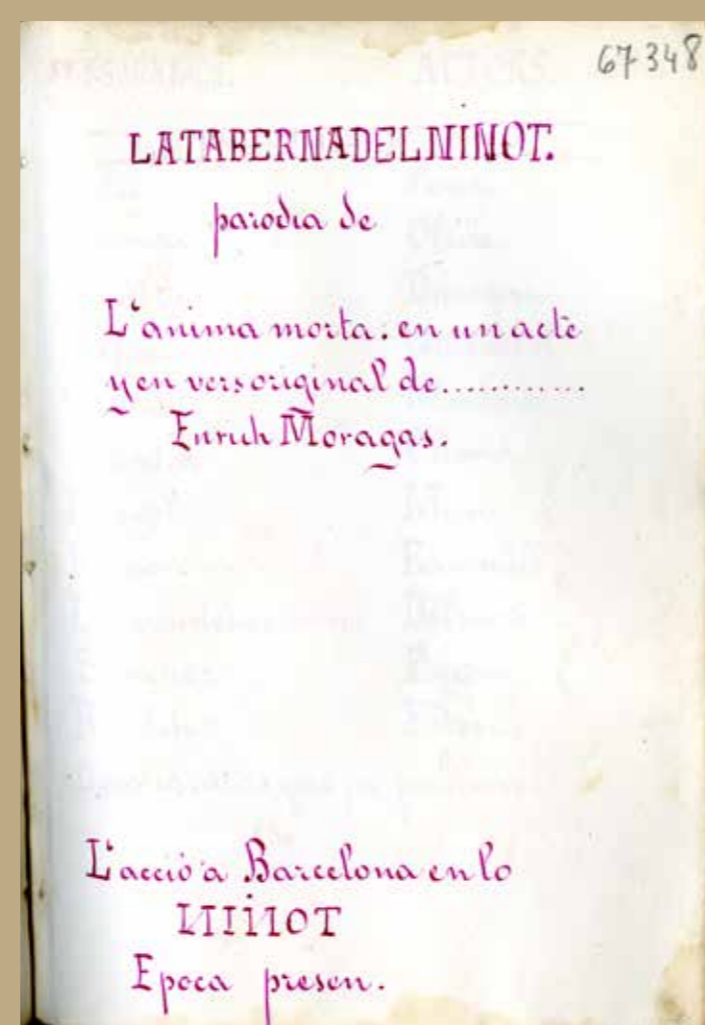 67348
LATABERNADELNINOT.
parodia de
L'anima morta. en un acte
y en vers original de............
Enrich Moragas.
L'acció a Barcelona en lo
NINOT
Epoca presen.